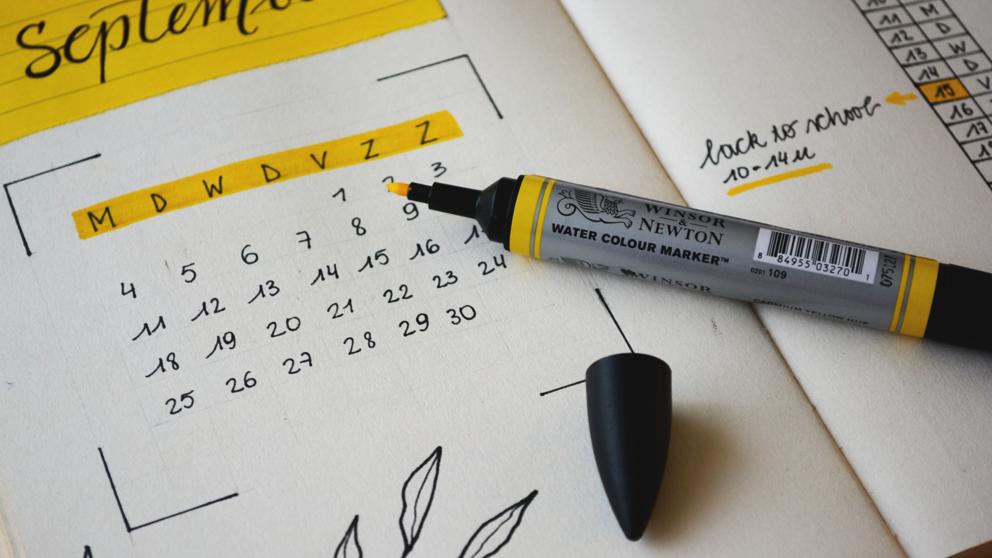 M D W D V Z Z
1 3
4 5 6 7 8 9
11 12 13 14 15 16
18 19 20 21 22 23 24
25 26 27 28 29 30
back to school
10-14u
11 M
12 D
13 W
14 D
15 V
16
17
WINSOR
&
NEWTON
WATER COLOUR MARKER™
WINSOR
0201 109
8 84955 03270 1
CADMIUM YELLOW HUE